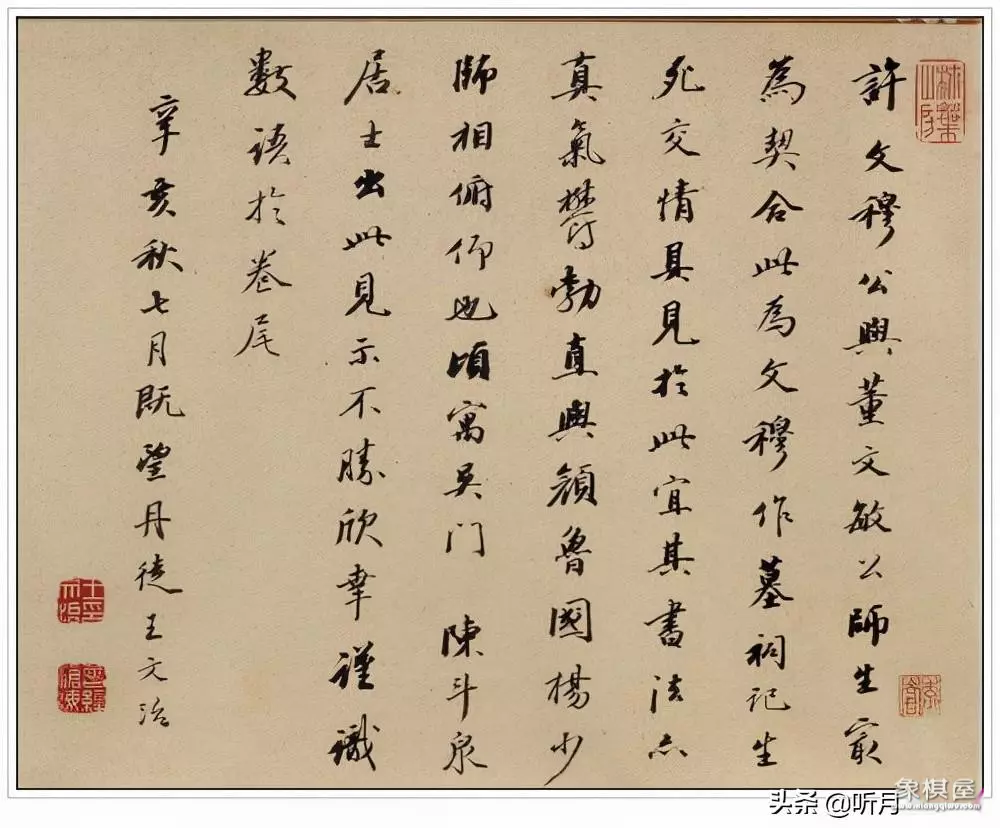 許文穆公與董文敏公師生寂
為契合此為文穆作墓祠記生
死交情具見於此宜其書法亦
真氣欝勃直與顏魯國楊少
師相俯仰也頃寓吳门陳斗泉
居士出此見示不勝欣幸谨識
數語於卷尾
辛亥秋七月既望丹徒王文治
象棋屋
www.xiangqiwu.com
头条 @听月